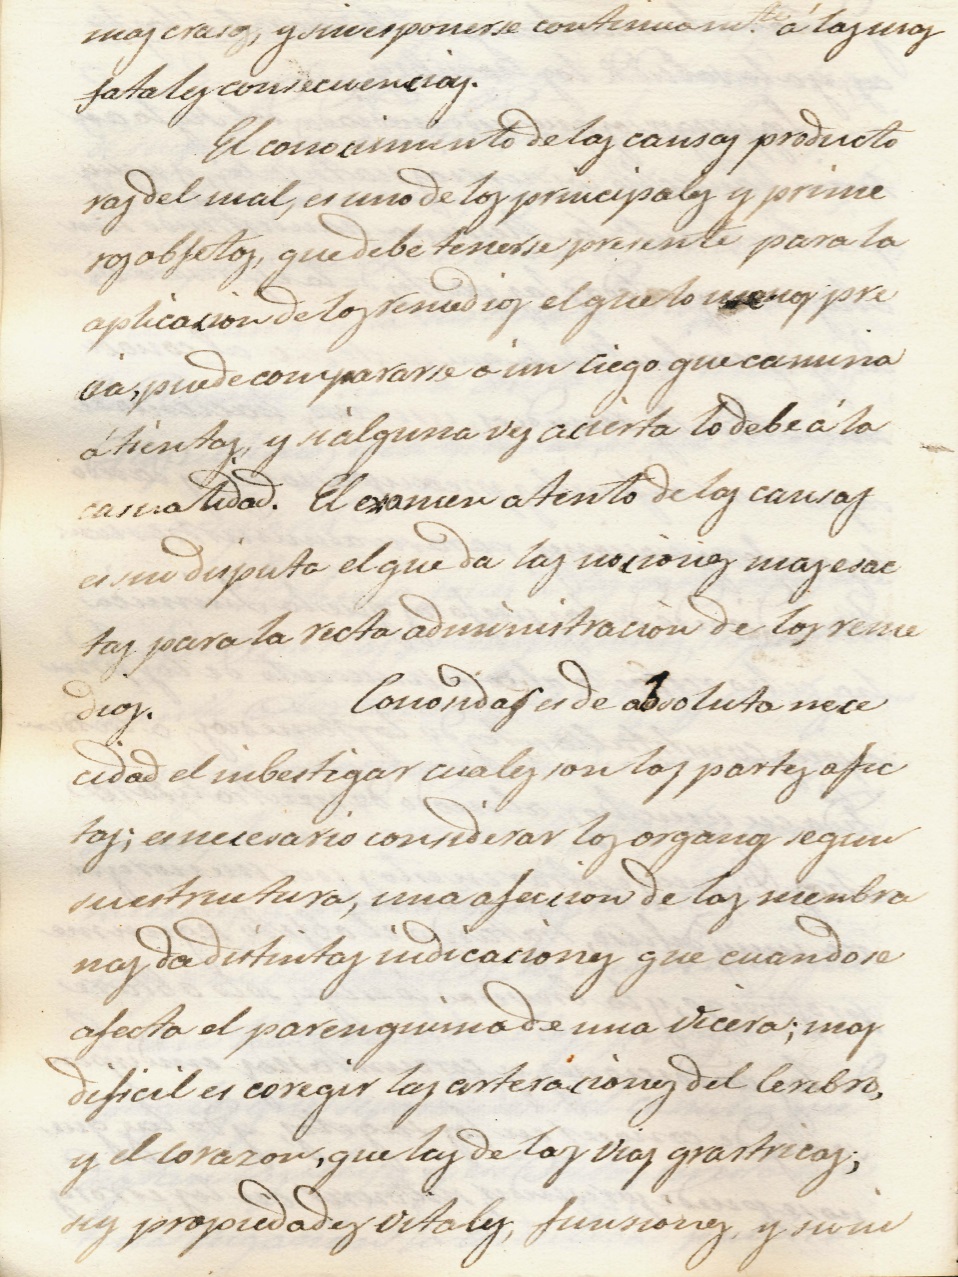 mas crasos, y sin esponerse continuam.te á las mas
fatales consecuencias.
El conocimiento de las causas producto
ras del mal, es uno de los principales y prime
ros objetos, que debe tenerse presente para la
aplicacion de los remedios el que lo menos pre
cia, puede compararse á un ciego que camina
á tientas, y si alguna ves acierta lo debe á la
casualidad. El examen atento de las causas
es sin disputa el que da las nociones mas esac
tas para la recta administracion de los reme
dios. Conosidas es de absoluta nece
cidad el inbestigar cuales son las partes afec
tas; es necesario considerar los organos segun
su estrutura, una afeccion de las menbra
nas da distintas indicaciones que cuando se
afecta el parenquima de una vicera; mas
dificil es coregir las arteraciones del Cerebro,
y el corazon, que las de las vias grastricas;
sus propiedades vitales, funsiones, y